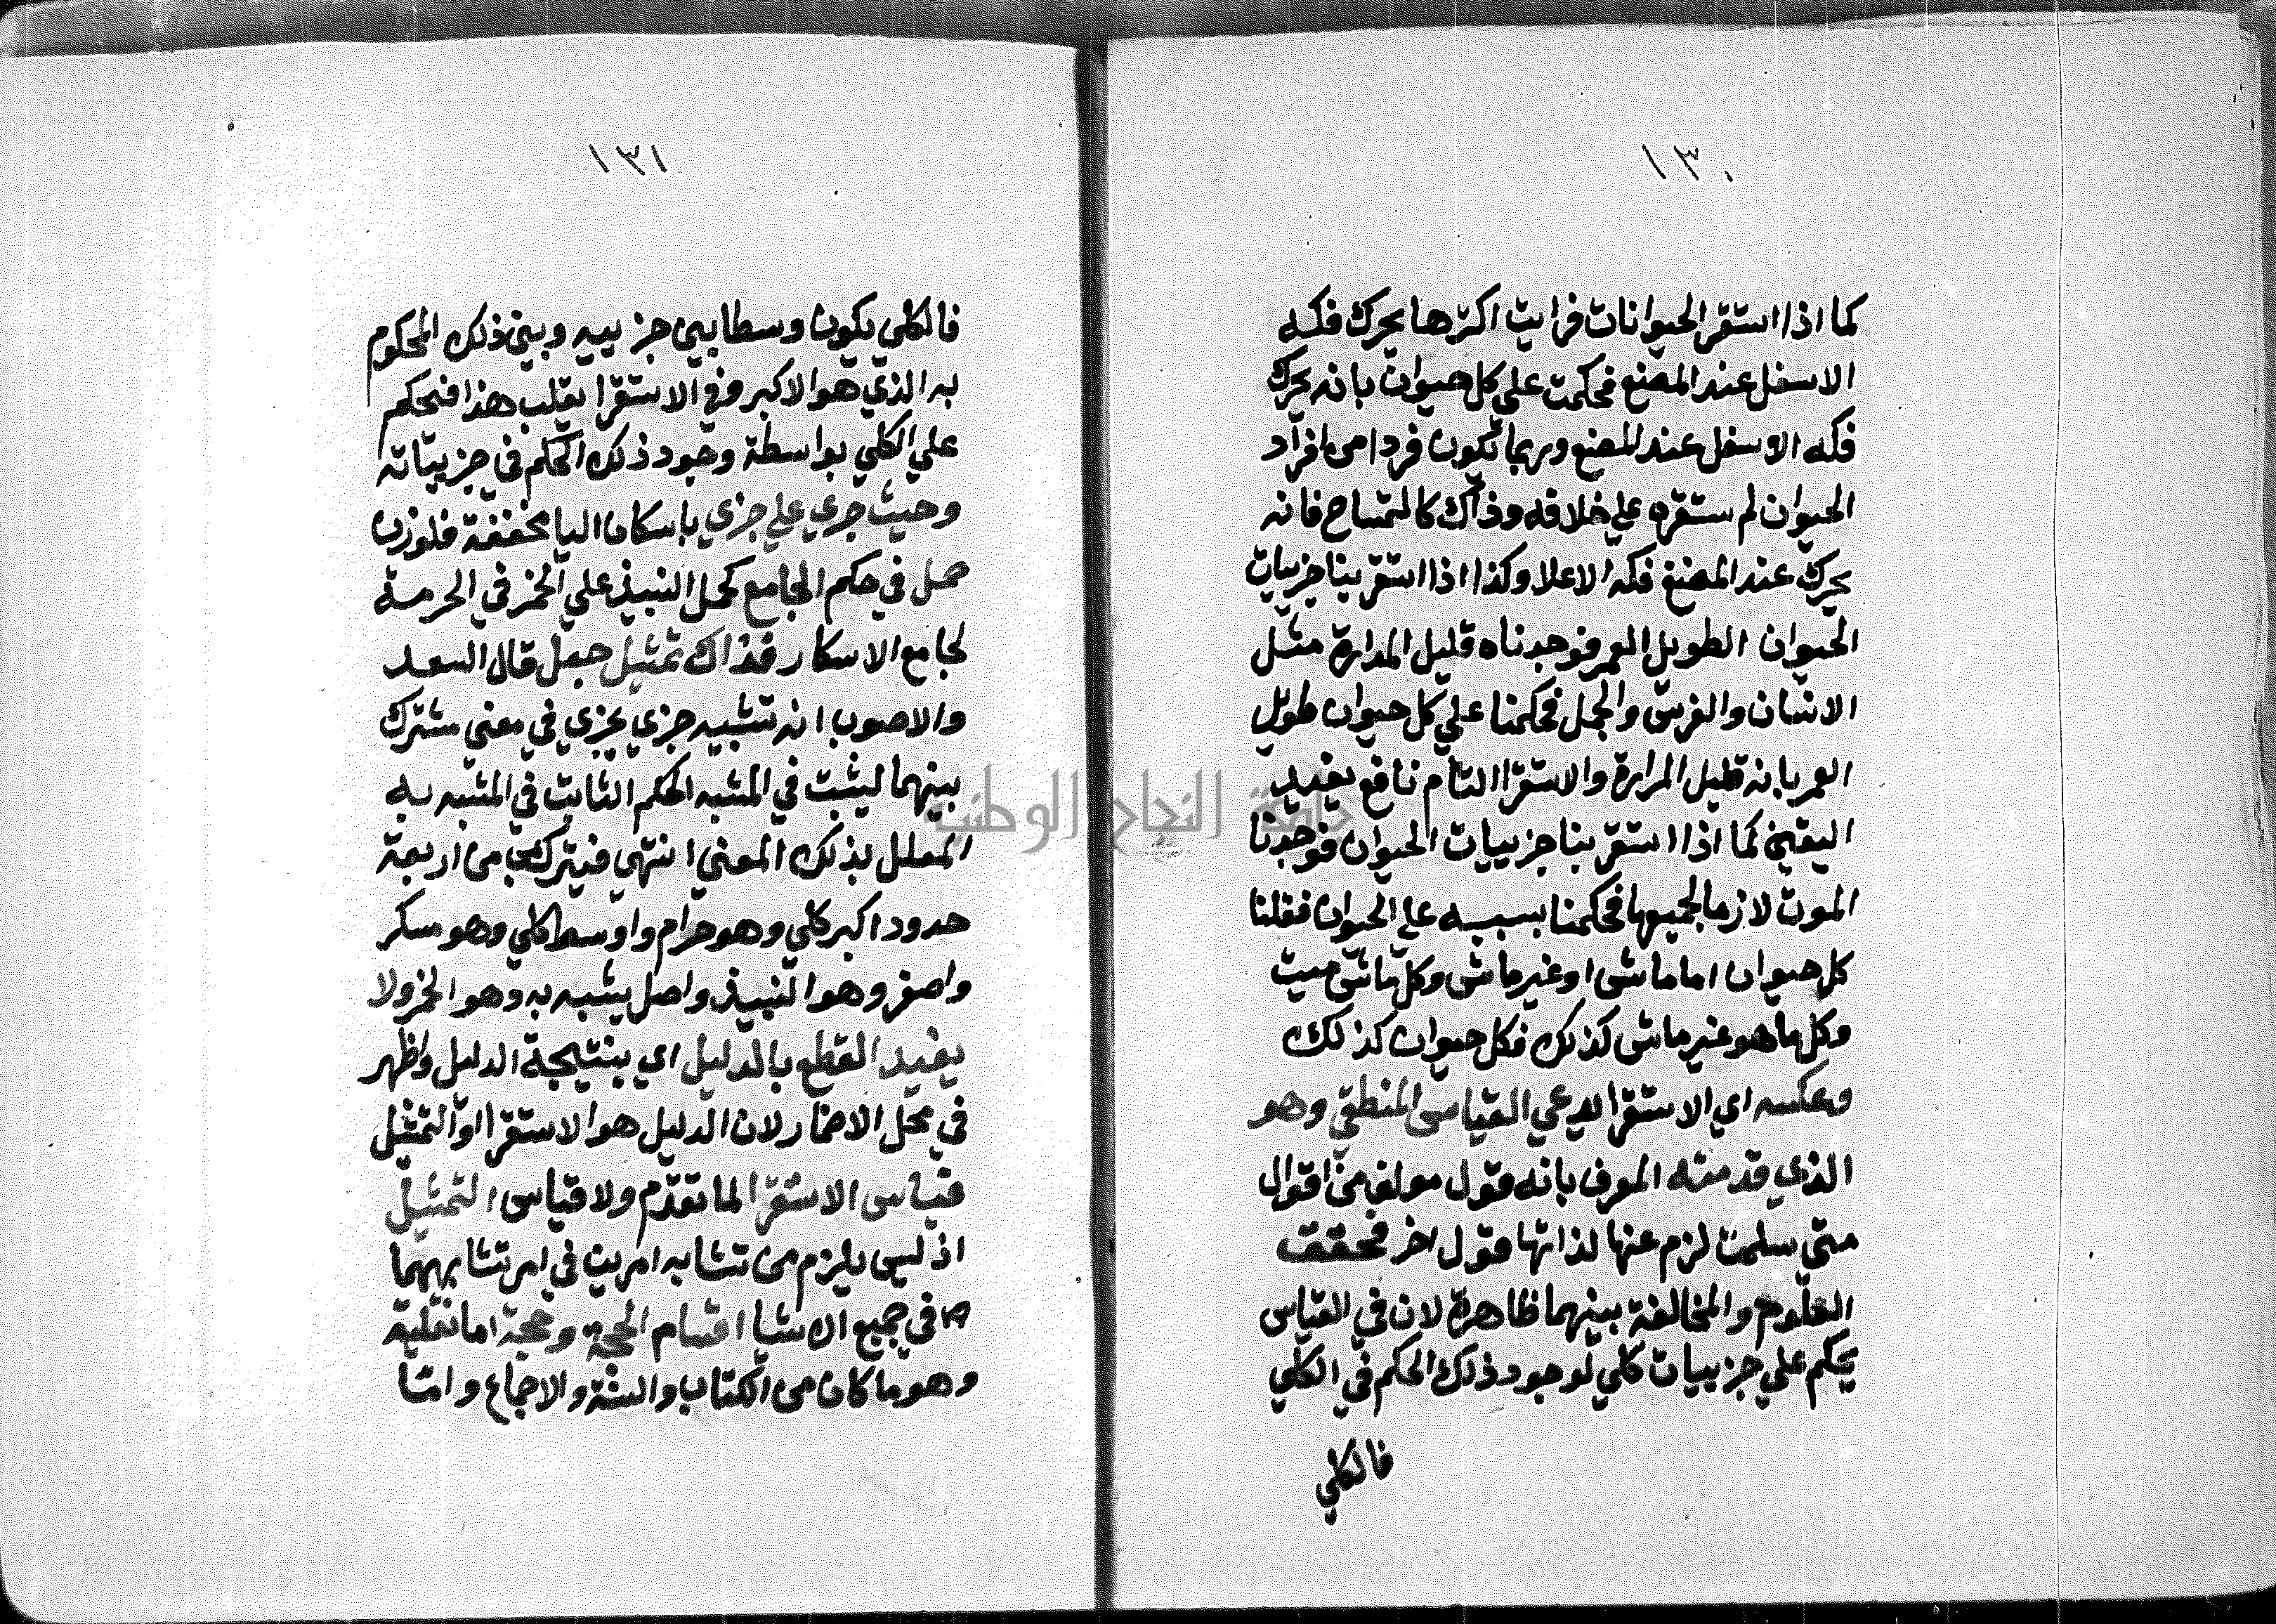 ١٣٠
كما اذا استقر الحيوانات فرايت اكثرها يحرك فكه
الاسفل عند المضغ فحكمت علي كل حيوان بانه يحرك
فكه الاسفل عند المضغ وربما تكون فردا من افراد
الحيوان لم ستقره علي خلافه وذاك كالتمساح فانه
يحرك عند المضغ فكه الاعلا وكذا اذا استقرينا جزييات
الحيوان الطويل العمر فوجدناه قليل المرارة مثل
الانسان والفرس والجمل فحكمنا علي كل حيوان طويل
العمر بانه قليل المرارة والاستقرا التام نافع يفيد
اليقين كما اذا استقرينا جزييات الحيوان فوجدنا
الموت لازما لجميعها فحكمنا بسببه علي الحيوان فقلنا
كل حيوان اما ماشي او غير ماشي وكل ماشي ميت
وكل ما هو غير ماشي كذلك فكل حيوان كذلك
وعكسه اي الاستقرا يدعي القياس المنطقي وهو
الذي قدمته المعرف بانه قول مولف من اقوال
متي سلمت لزم عنها لذاتها قول اخر فحققت
العلوم والمخالفة بينهما ظاهرة لان في القياس
يحكم علي جزييات كلي لوجود ذلك الحكم في الكلي
فالكلي
١٣١
فالكلي يكون وسطا بين جزييه وبين ذلك المحكوم
به الذي هو الاكبر وفي الاستقرا يقلب هذا فنحكم
علي الكلي بواسطة وجود ذلك الحكم في جزيياته
وحيث جري علي جزي باسكان اليا مخففة فلوزن
حمل في حكم الجامع كحمل النبيذ علي الخمر في الحرمة
لجامع الاسكار فذاك تمثيل جعل قال السعد
والاصوب انه تشبيه جزي بجزي في معني مشترك
بينهما ليثبت في المشبه الحكم الثابت في المشبه به
المعلل بذلك المعني انتهي فيتركب من اربعة
حدود اكبر كلي وهو حرام واوسط كلي وهو مسكر
واصغر وهو النبيذ واصل يشبه به وهو الخمر ولا
يفيد القطع بالدليل اي بنتيجة الدليل واظهر
في محل الاضمار لان الدليل هو الاستقرا او التمثيل
قياس الاستقرا لما تقدم ولا قياس التمثيل
اذ ليس يلزم من تشابه امرين في امر تشابههما
في جميع الاشيا اقسام الحجة وحجة اما نقلية
وهو ما كان من الكتاب والسنة والاجماع وامتا
جامعة النجاح الوطنية